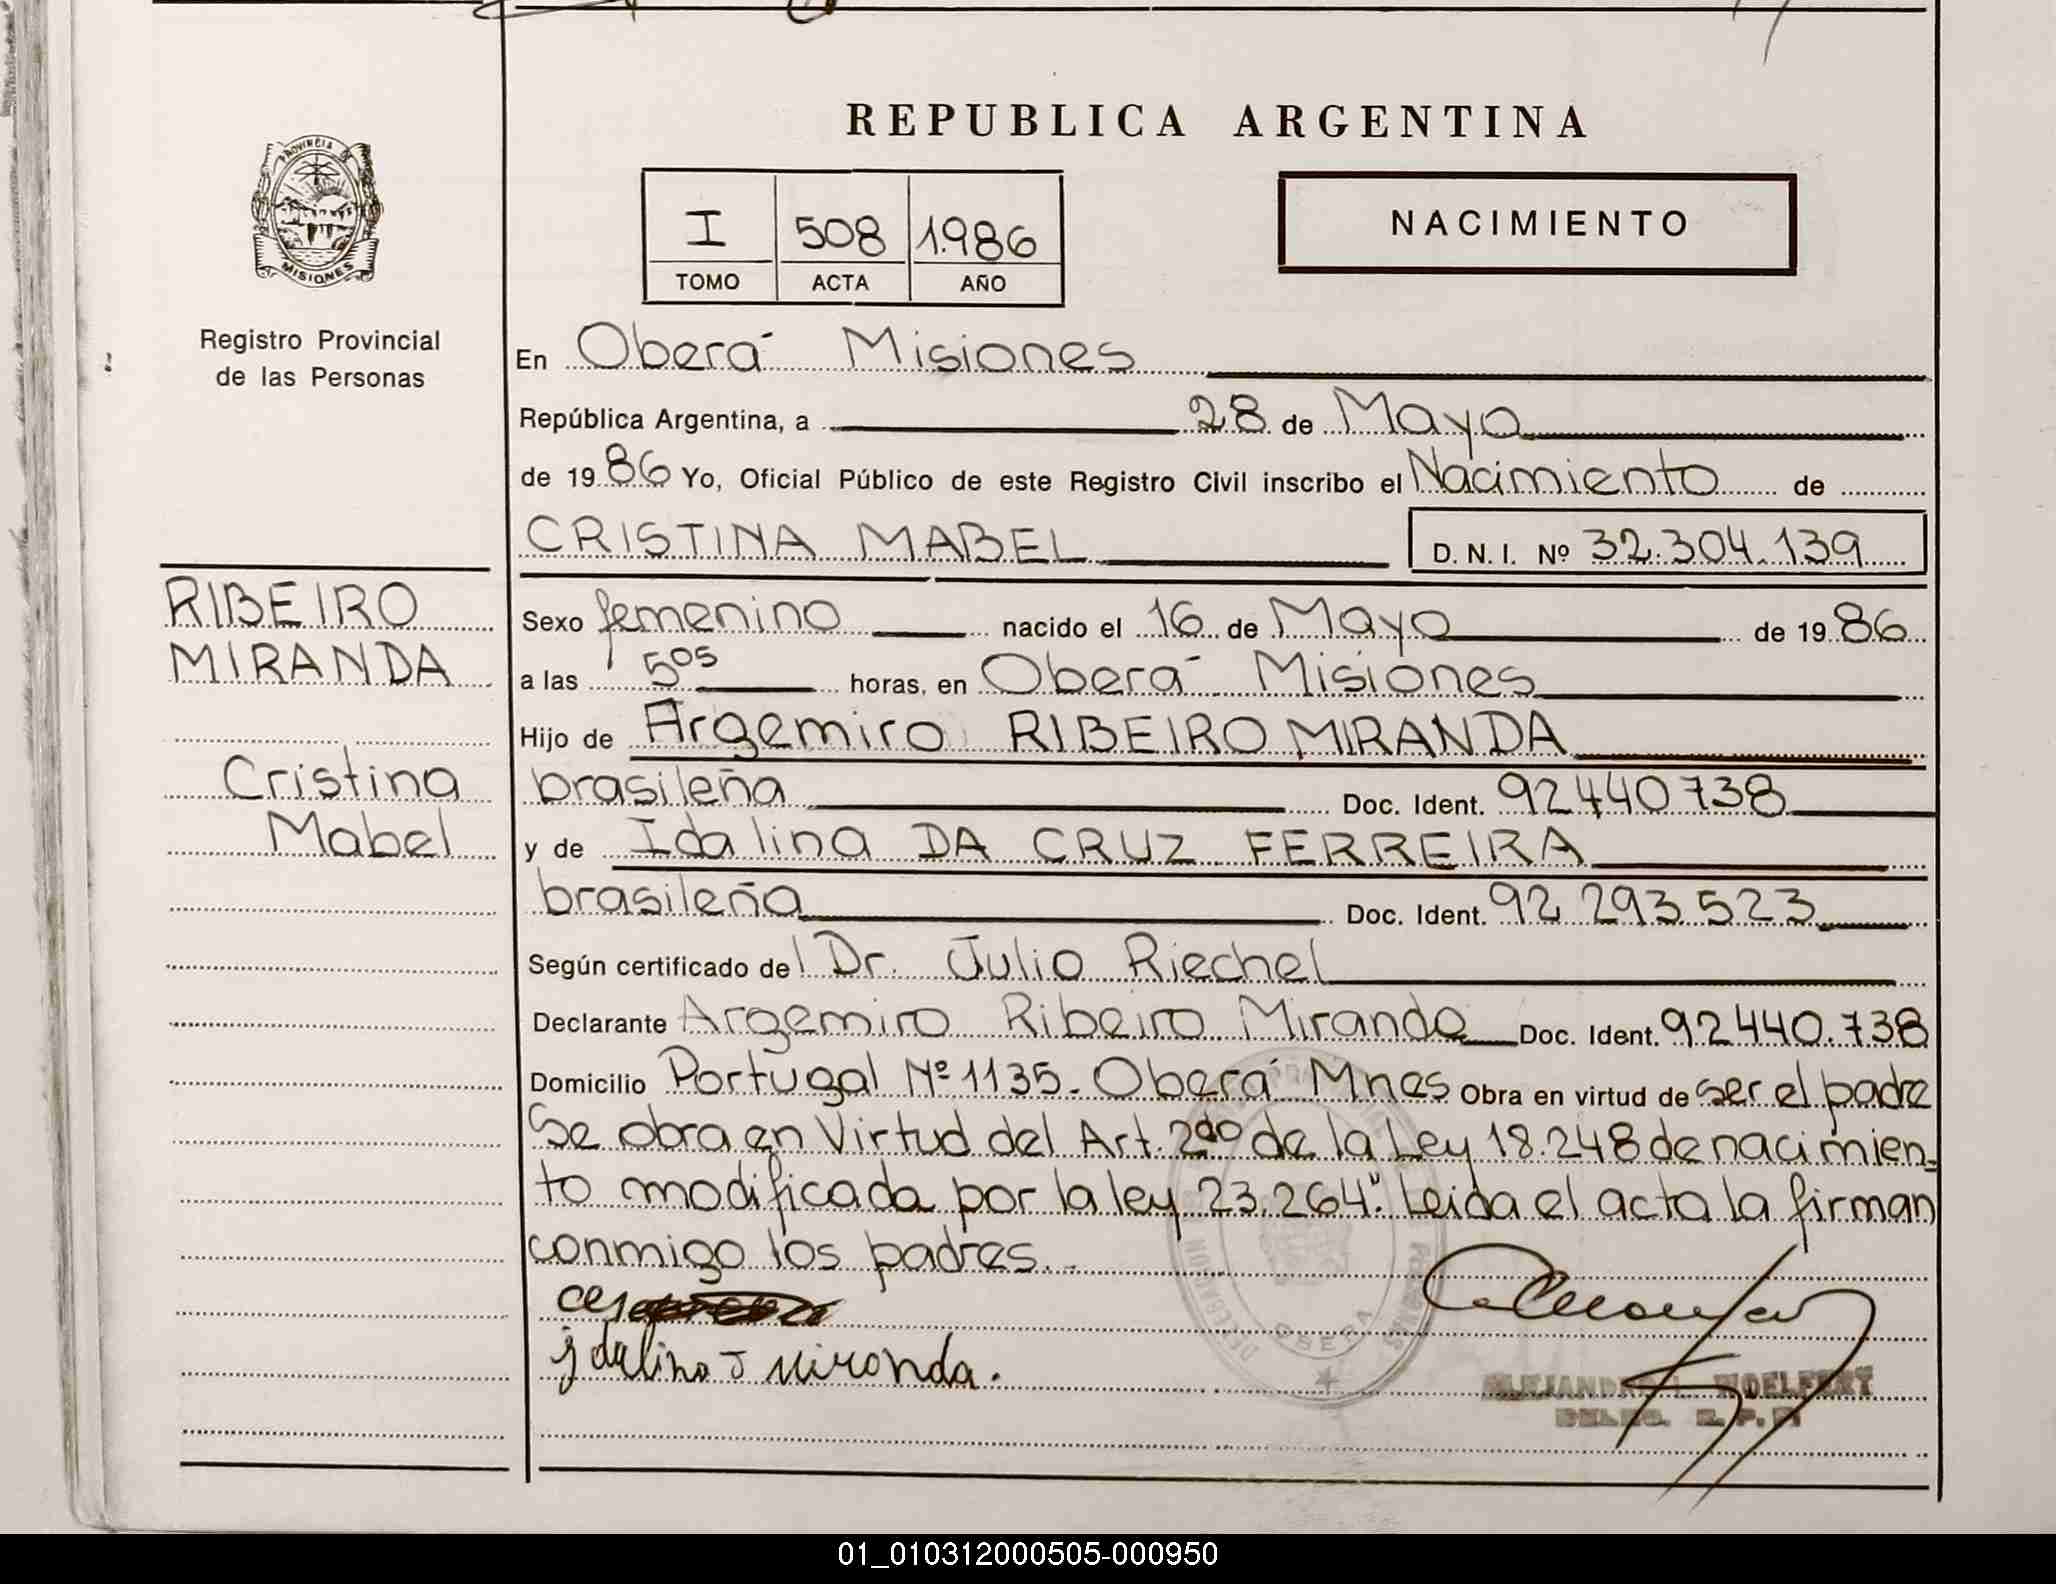 REPUBLICA ARGENTINA
PROVINCIA DE
MISIONES
I 508 1.986
TOMO ACTA AÑO
NACIMIENTO
Registro Provincial
de las Personas
RIBEIRO
MIRANDA
Cristina
Mabel
En Oberá Misiones
República Argentina, a 28 de Mayo
de 1986 Yo, Oficial Público de este Registro Civil inscribo el Nacimiento de
CRISTINA MABEL D. N. I. Nº 32.304.139
Sexo femenino nacido el 16 de Mayo de 1986
a las 5⁰⁵ horas, en Oberá Misiones
Hijo de Argemiro RIBEIRO MIRANDA
brasileña Doc. Ident. 92440738
y de Idalina DA CRUZ FERREIRA
brasileña Doc. Ident. 92 293.523
Según certificado del Dr. Julio Riechel
Declarante Argemiro Ribeiro Miranda Doc. Ident. 92440.738
Domicilio Portugal Nº 1135. Oberá Mnes Obra en virtud de ser el padre
Se obra en Virtud del Art. 2do de la Ley 18.248 de nacimien-
to modificada por la ley 23.264". Leida el acta la firman
conmigo los padres.
OBERA
01_010312000505-000950